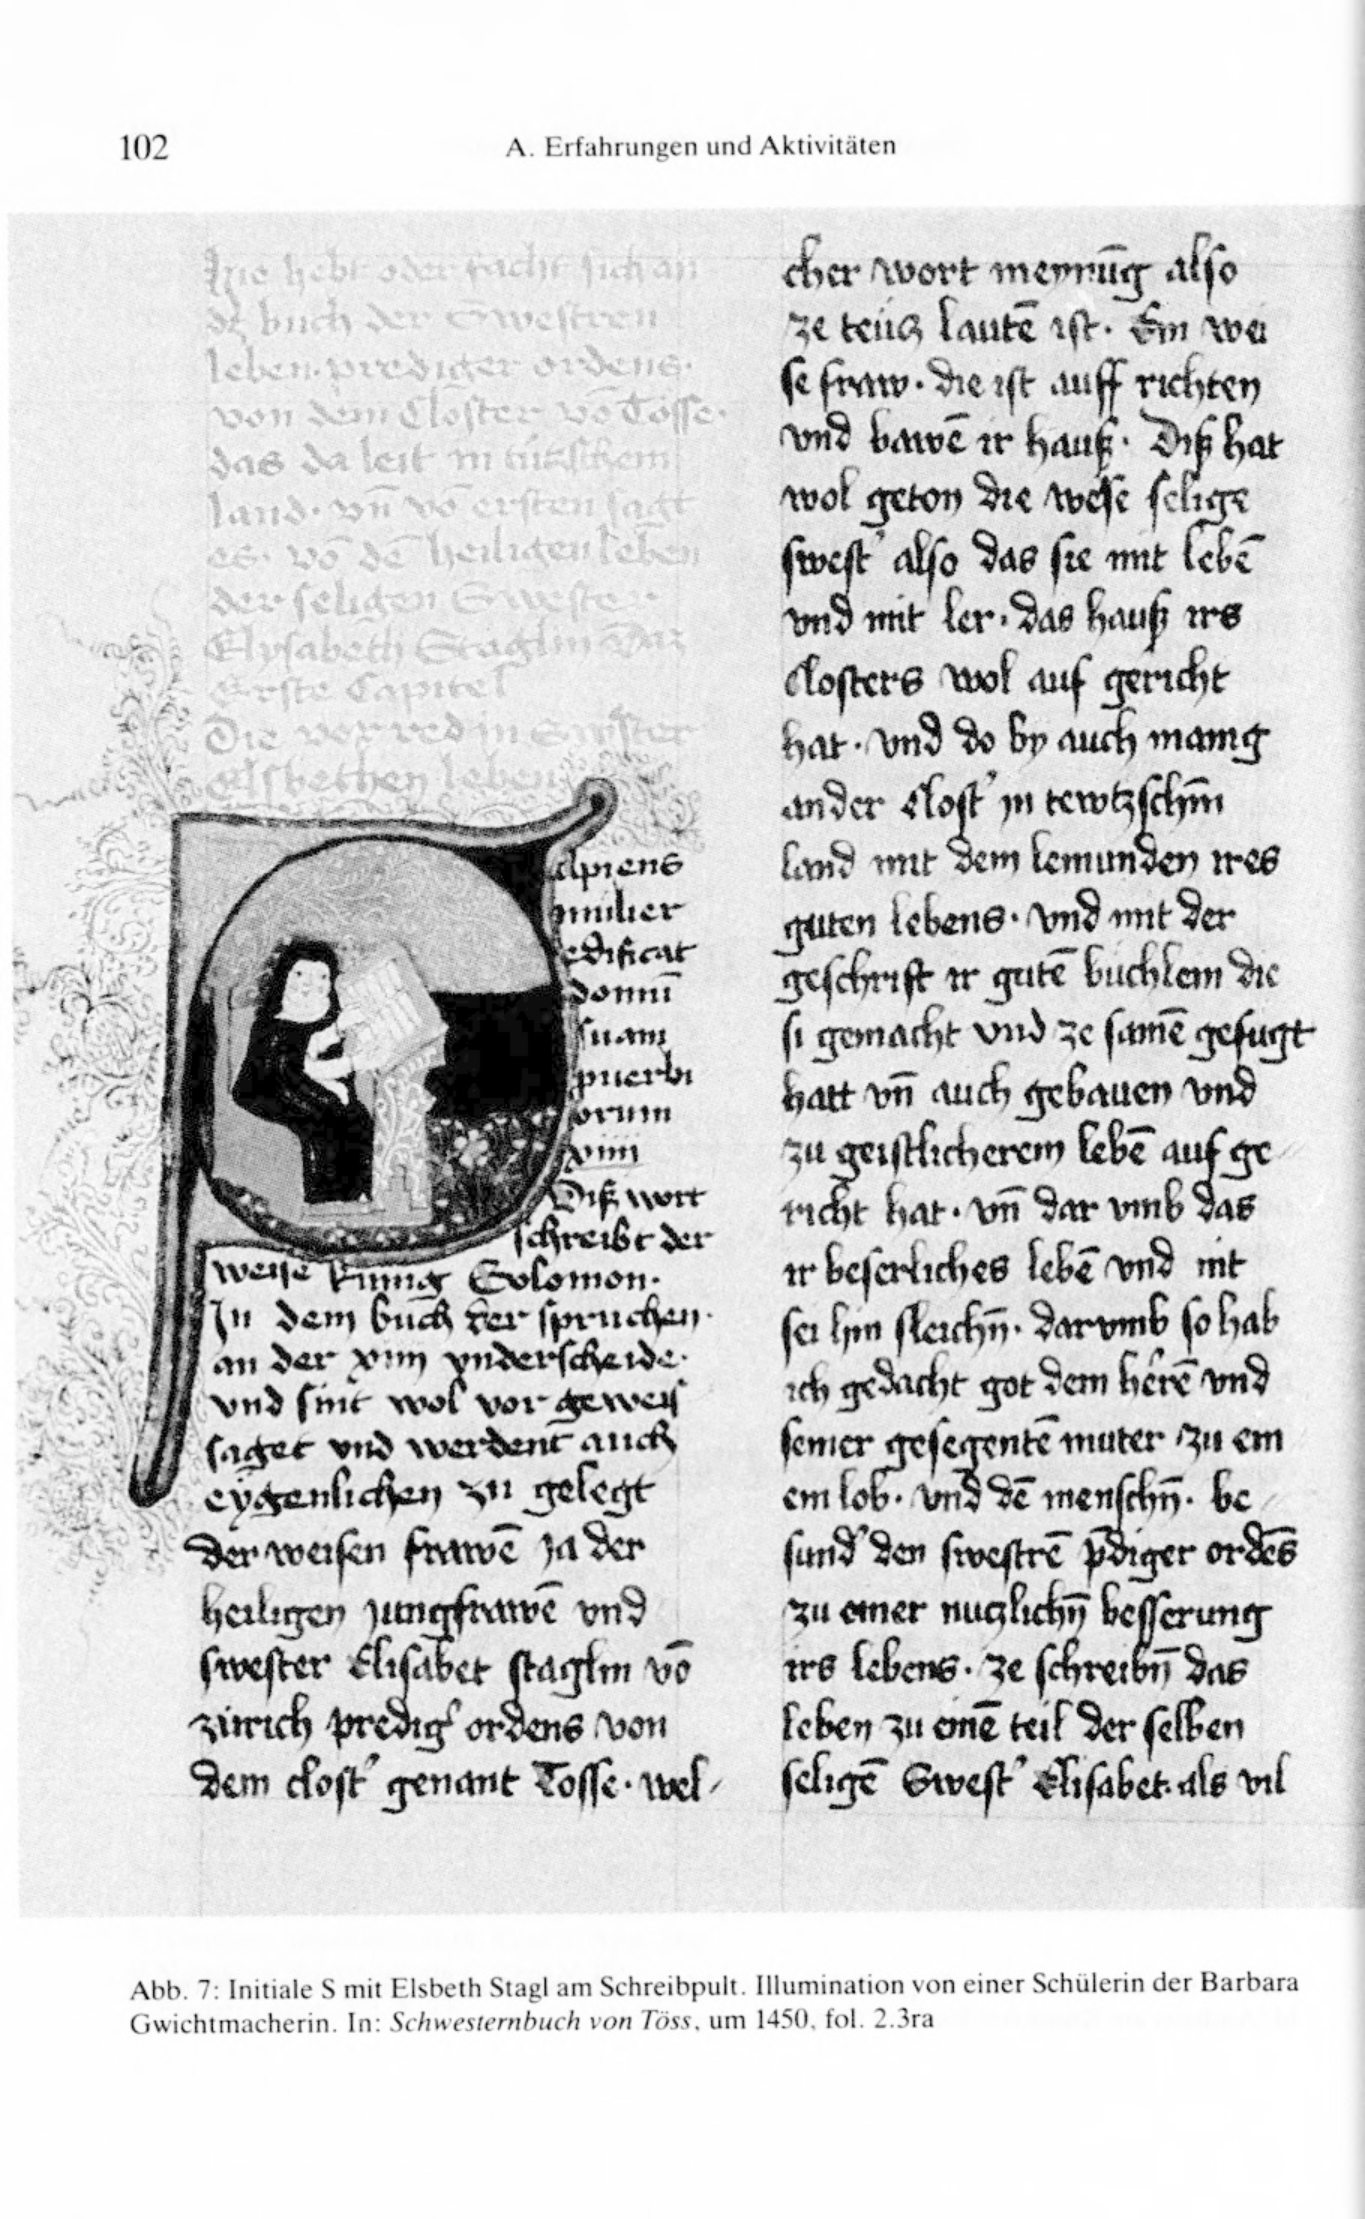 102
A. Erfahrungen und Aktivitäten
Hie hebt oder facht sich an
dz buch der Swestren
leben. prediger ordens.
von dem Closter vo̅ Tösse.
das da leit in tützschem
land. vn̅ vo̅ ersten sagt
es. vo̅ de̅ heiligen leben
der seligen Swester
Elysabeth Staglin Daz
Erste Capitel
Die vorred in Swester
Elsbethen leben
apiens
mulier
edificat
domu̅
suam
puerbi
orum
xiiii
Diß wort
schreibt der
weise kunig Solomon.
In dem buch der spruchen.
an der xiiii vnderscheide.
vnd sint wol vor geweis
saget vnd werdent auch
eygenlichen zu gelegt
der weisen frawe̅ ja der
heiligen jungfrawe̅ vnd
swester Elisabet staglin vo̅
zürich predig' ordens von
dem clost' genant Tosse. wel-
cher wort meynu̅g also
ze teücz laute̅ ist. Ein wei
se fraw. die ist auff richten
vnd bawe̅ ir hauß. Diß hat
wol geton die wese selige
swest' also das sie mit lebe̅
vnd mit ler. das hauß irs
Closters wol auf gericht
hat. vnd do by auch manig
ander Clost' jn tewtzschm̅
land mit dem lemunden ires
guten lebens. vnd mit der
geschrift ir gute̅ buchlein die
si gemacht vnd ze same̅ gefugt
hatt vn̅ auch gebauen vnd
zu geistlicherem lebe̅ auf ge
richt hat. vn̅ dar vmb das
ir beserliches lebe̅ vnd nit
sei hin sleichn̅. darvmb so hab
ich gedacht got dem here̅ vnd
seiner gesegente̅ muter zu ein
em lob. vnd de̅ menschn̅. be
sund' den swestre̅ p̅diger orde̅s
zu einer nuczlichn̅ besserung
irs lebens. ze schreibn̅ das
leben zu eine̅ teil der selben
selige̅ Swest' Elisabet. als vil
Abb. 7: Initiale S mit Elsbeth Stagl am Schreibpult. Illumination von einer Schülerin der Barbara
Gwichtmacherin. In: Schwesternbuch von Töss, um 1450, fol. 2.3ra